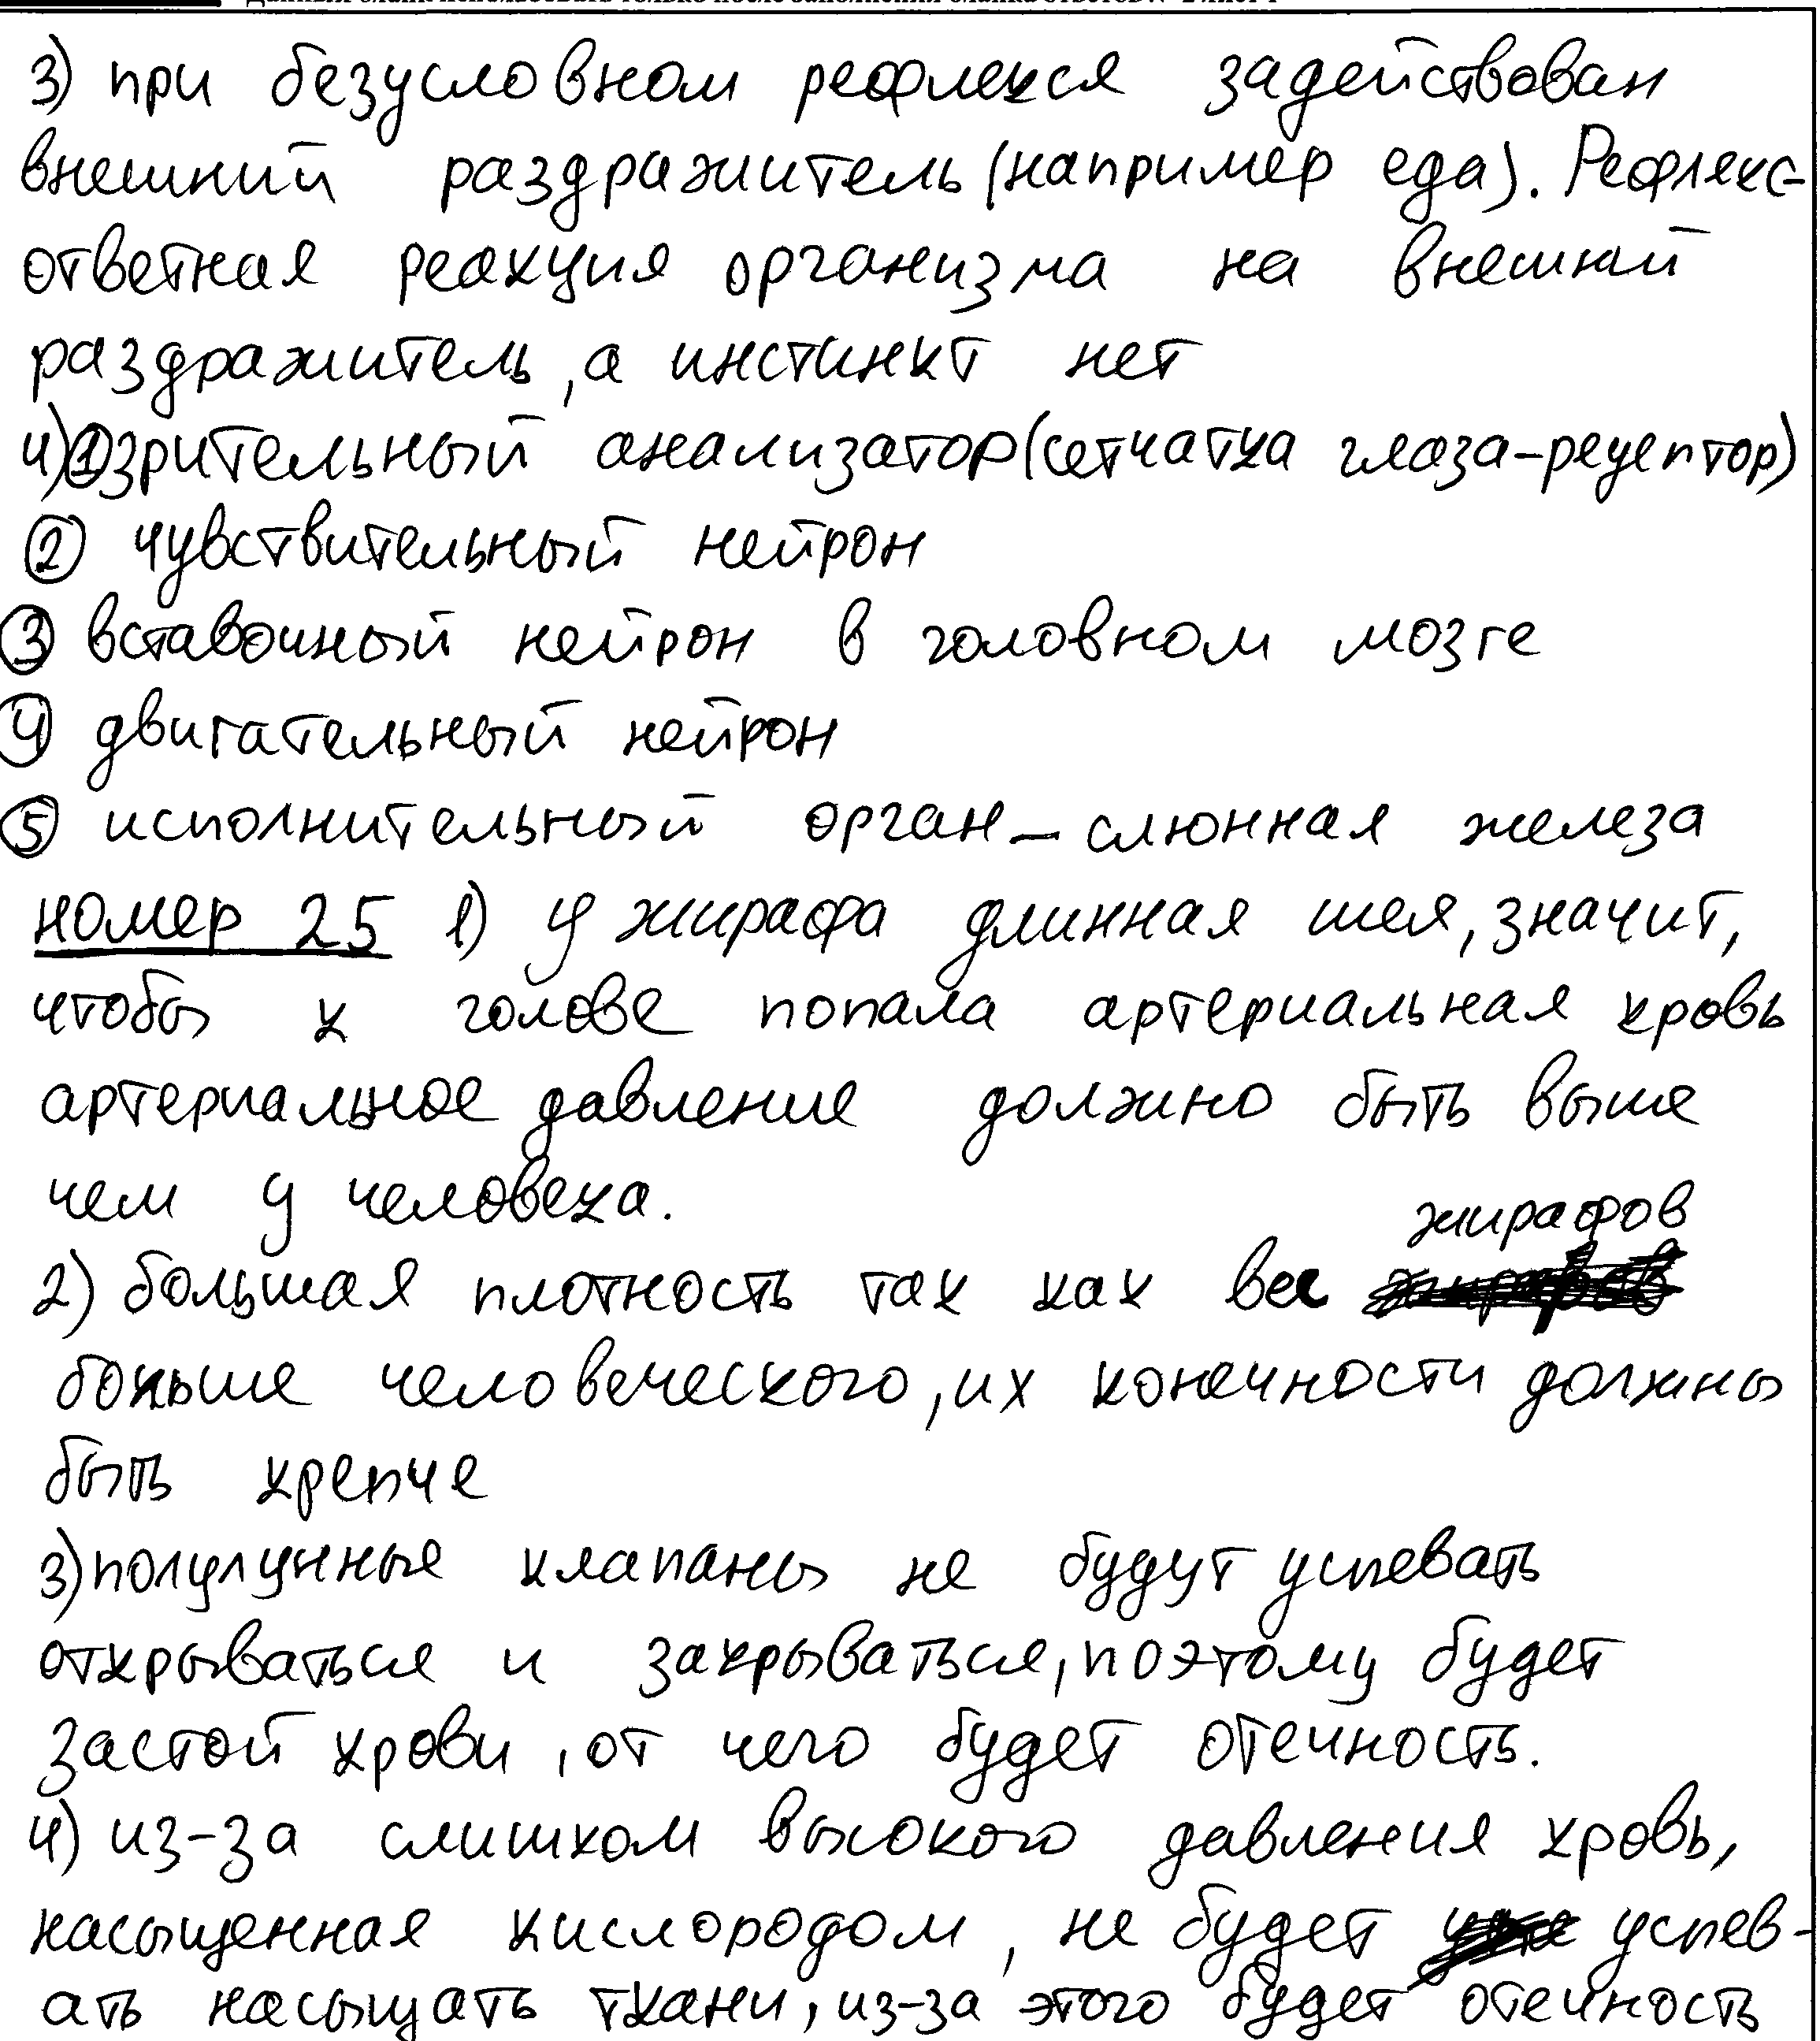 3) при безусловном рефлекся задействован
внешний раздражитель (например еда). Рефлекс-
ответная реакция организма на внешний
раздражитель, а инстинкт нет
4) ① зрительный анализатор (сетчатка глаза-рецептор)
② чувствительный нейрон
③ вставочный нейрон в головном мозге
④ двигательный нейрон
⑤ исполнительный орган - слюнная железа
номер 25 1) у жирафа длинная шея, значит,
чтобы к голове попала артериальная кровь
артериальное давление должно быть выше
чем у человека.
жирафов
2) большая плотность так как вес
больше человеческого, их конечности должны
быть крепче
3) полулунные клапаны не будут успевать
открываться и закрываться, поэтому будет
застой крови, от чего будет отечность.
4) из-за слишком высокого давления кровь,
насыщенная кислородом, не будет успев-
ать насыщать ткани, из-за этого будет отечность